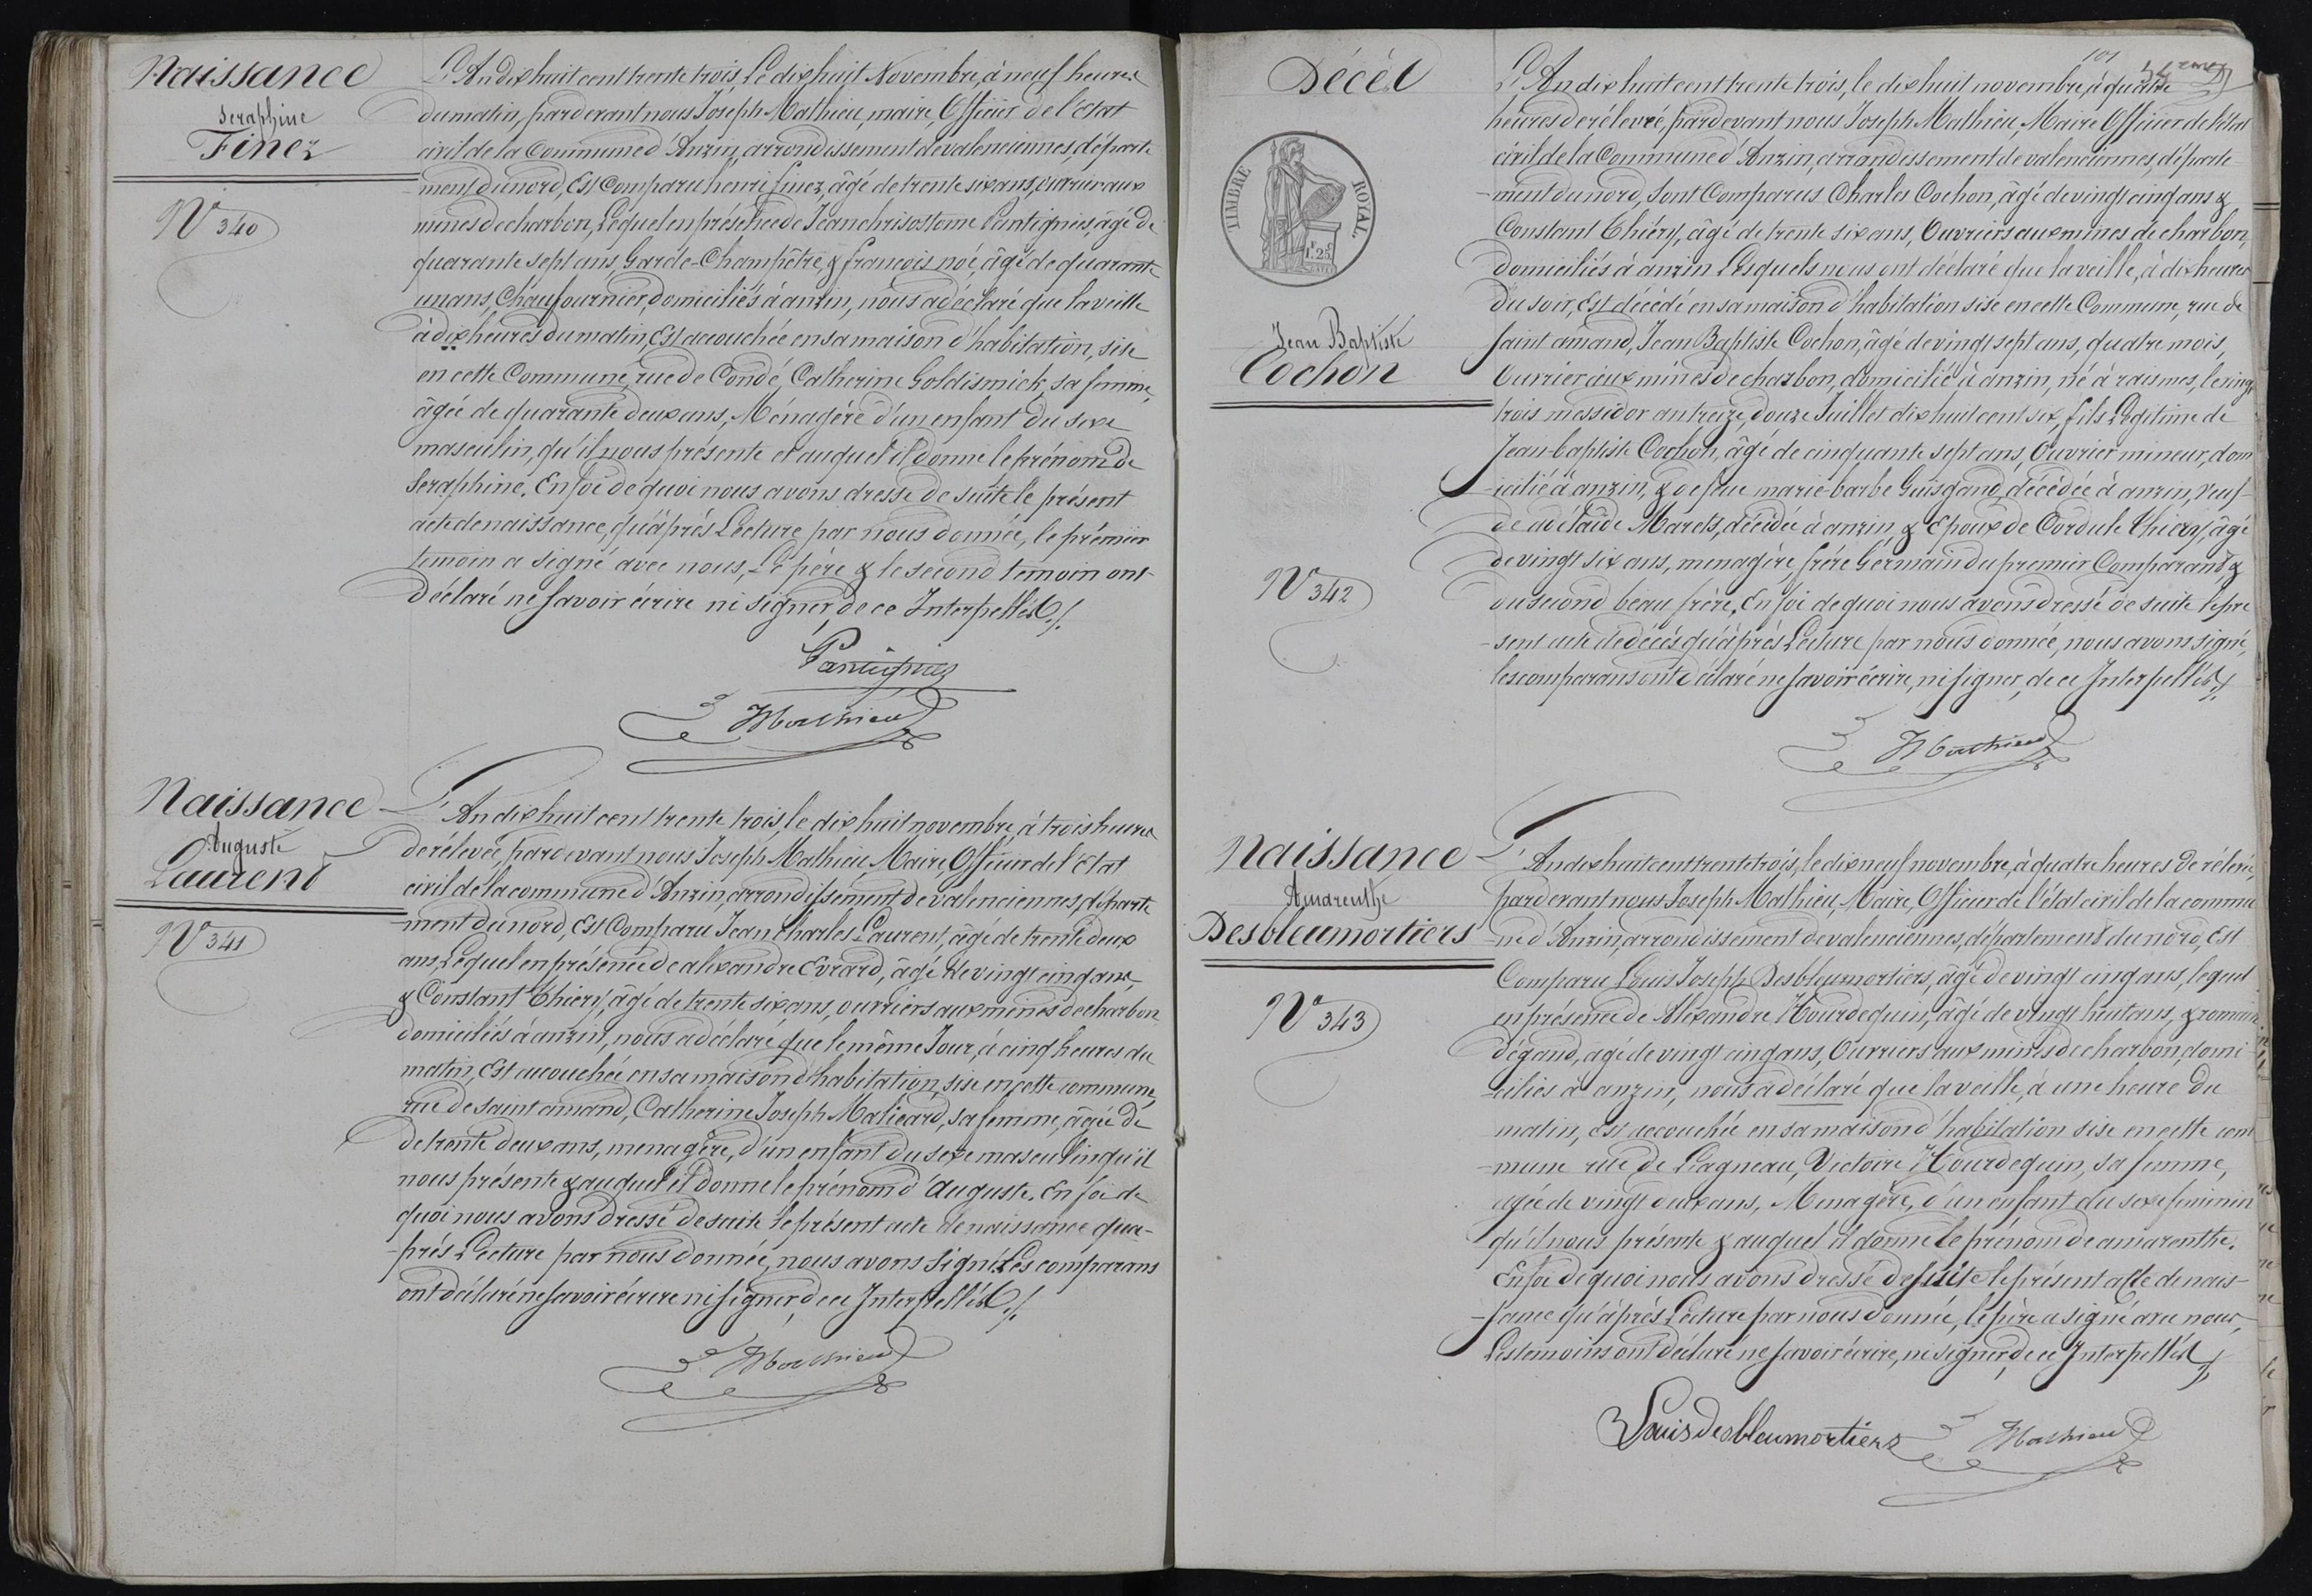 Naissance
Seraphine
Finez
N° 340
L'An dix huit cent trente trois, Le dix huit Novembre, à neuf heures
du matin, pardevant nous Joseph Mathieu, maire, Officier de l'Etat
civil de la Commune d'Anzin, arrondissement de valenciennes, départe
ment du nord, Est Comparu henri finez, âgé de trente six ans, ouvrier aux
mines de charbon, Lequel en présence de Jean chrisostome Pantignies, âgé de
quarante sept ans, Garde-Champêtre, & francois noé, âgé de quarante
un ans, Chaufournier, domiciliés à anzin, nous a déclaré que la veille
à dix heures du matin, Est accouchée en sa maison d'habitation, sise
en cette Commune, rue de Condé, Catherine Goldismick, sa femme,
âgée de quarante deux ans, Ménagère d'un enfant du sexe
masculin, qu'il nous présente et auquel il donne le prénom de
Seraphine. En foi de quoi nous avons dressé de suite le présent
acte de naissance, qu'après Lecture par nous donnée, le prémier
temoin a signé avec nous, Le père & le second temoin ont
déclaré ne savoir écrire ni signer, de ce Interpellés ./.
Pantignies
J Mathieu
Naissance
Auguste
Laurent
N° 341
L'An dix huit cent trente trois, le dix huit novembre, à trois heures
de rélevée, pardevant nous Joseph Mathieu, Maire, Officier de l'Etat
civil de la commune d'Anzin, arrondissement de valenciennes, départe
-ment du nord, Est Comparu Jean Charles Laurent, âgé de trente deux
ans, Lequel en présence de alexandre Evrard, âgé de vingt cinq ans,
& Constant Thiery, âgé de trente six ans, ouvriers aux mines de charbon
domiciliés à anzin, nous a déclaré que le même Jour, à cinq heures du
matin, Est accouchée en sa maison d'habitation, sise en cette commune,
rue de saint amand, Catherine Joseph Malicard, sa femme, âgée de
de trente deux ans, menagère, d'un enfant du sexe masculin qu'il
nous présente & auquel il donne le prénom d'Auguste. En foi de
quoi nous avons dressé de suite le présent acte de naissance qu'a-
-près Lecture par nous donnée, nous avons signé. Les comparans
ont déclaré ne savoir écrire ni signer, de ce Interpellés ./.
J Mathieu
101
Décès
TIMBRE ROYAL
1 F. 25 C
Jean Baptiste
Cochon
N° 342
L'An dix huit cent trente trois, le dix huit novembre, à quatre
heures de rélevée, pardevant nous Joseph Mathieu, Maire Officier de l'état
civil de la Commune d'Anzin, arrondissement de valenciennes, départe-
-ment du nord, Sont Comparus Charles Cochon, âgé de vingt cinq ans &
Constant Thiéry, âgé de trente six ans, Ouvriers aux mines de charbon,
domiciliés à anzin Lesquels nous ont déclaré que la veille, à dix heures
du soir, Est décédé en sa maison d'habitation sise en cette Commune, rue de
saint amand, Jean Baptiste Cochon, âgé de vingt sept ans, quatre mois,
Ouvrier aux mines de charbon, domicilié à anzin, né à raismes, le vingt
trois messidor an treize, douze Juillet dix huit cent six, fils Légitime de
Jean-baptiste Cochon, âgé de cinquante sept ans, Ouvrier mineur, dom
-icilié à anzin, & de feue marie-barbe Guisgand, décédée à anzin, veuf
de adélaïde Marets, décédée à anzin, & Epoux de Cordule Thiery, âgé
de vingt six ans, menagère, frère Germain du premier Comparant, &
du second beau frère. En foi de quoi nous avons dressé de suite le pré
-sent acte de décès qu'après Lecture par nous donnée, nous avons signé,
les comparans ont déclaré ne savoir écrire, ni signer, de ce Interpellés ./.
J Mathieu
Naissance
Amarenthe
Desbleumortiers
N° 343
L'An dix huit cent trente trois, le dix neuf novembre, à quatre heures de rélevée,
pardevant nous Joseph Mathieu, Maire, Officier de l'état civil de la commu
-ne d'Anzin, arrondissement de valenciennes, département du nord, Est
Comparu Louis Joseph Desbleumortiers, âgé de vingt cinq ans, lequel
en présence de Alexandre Hourdequin, âgé de vingt huit ans, & romain
dégand, agé de vingt cinq ans, Ouvriers aux mines de charbon, domi-
-ciliés à anzin, nous a déclaré que la veille, à une heure du
matin, est accouchée en sa maison d'habitation sise en cette com
-mune rue de L'agneau, Victoire Hourdequin, sa femme,
agée de vingt deux ans, Menagère, d'un enfant du sexe feminin
qu'il nous présente & auquel il donne le prénom de amarenthe.
En foi de quoi nous avons dressé de suite le présent acte de nais-
-sance qu'après Lecture par nous donnée, le père a signé avec nous,
Les temoins ont déclaré ne savoir écrire, ni signer, de ce Interpellés ./.
Louis Desbleumortiers
J Mathieu